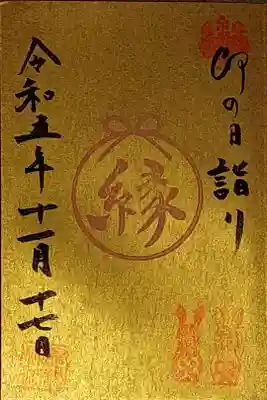 卯の日詣り
縁
令和五年十一月十七日